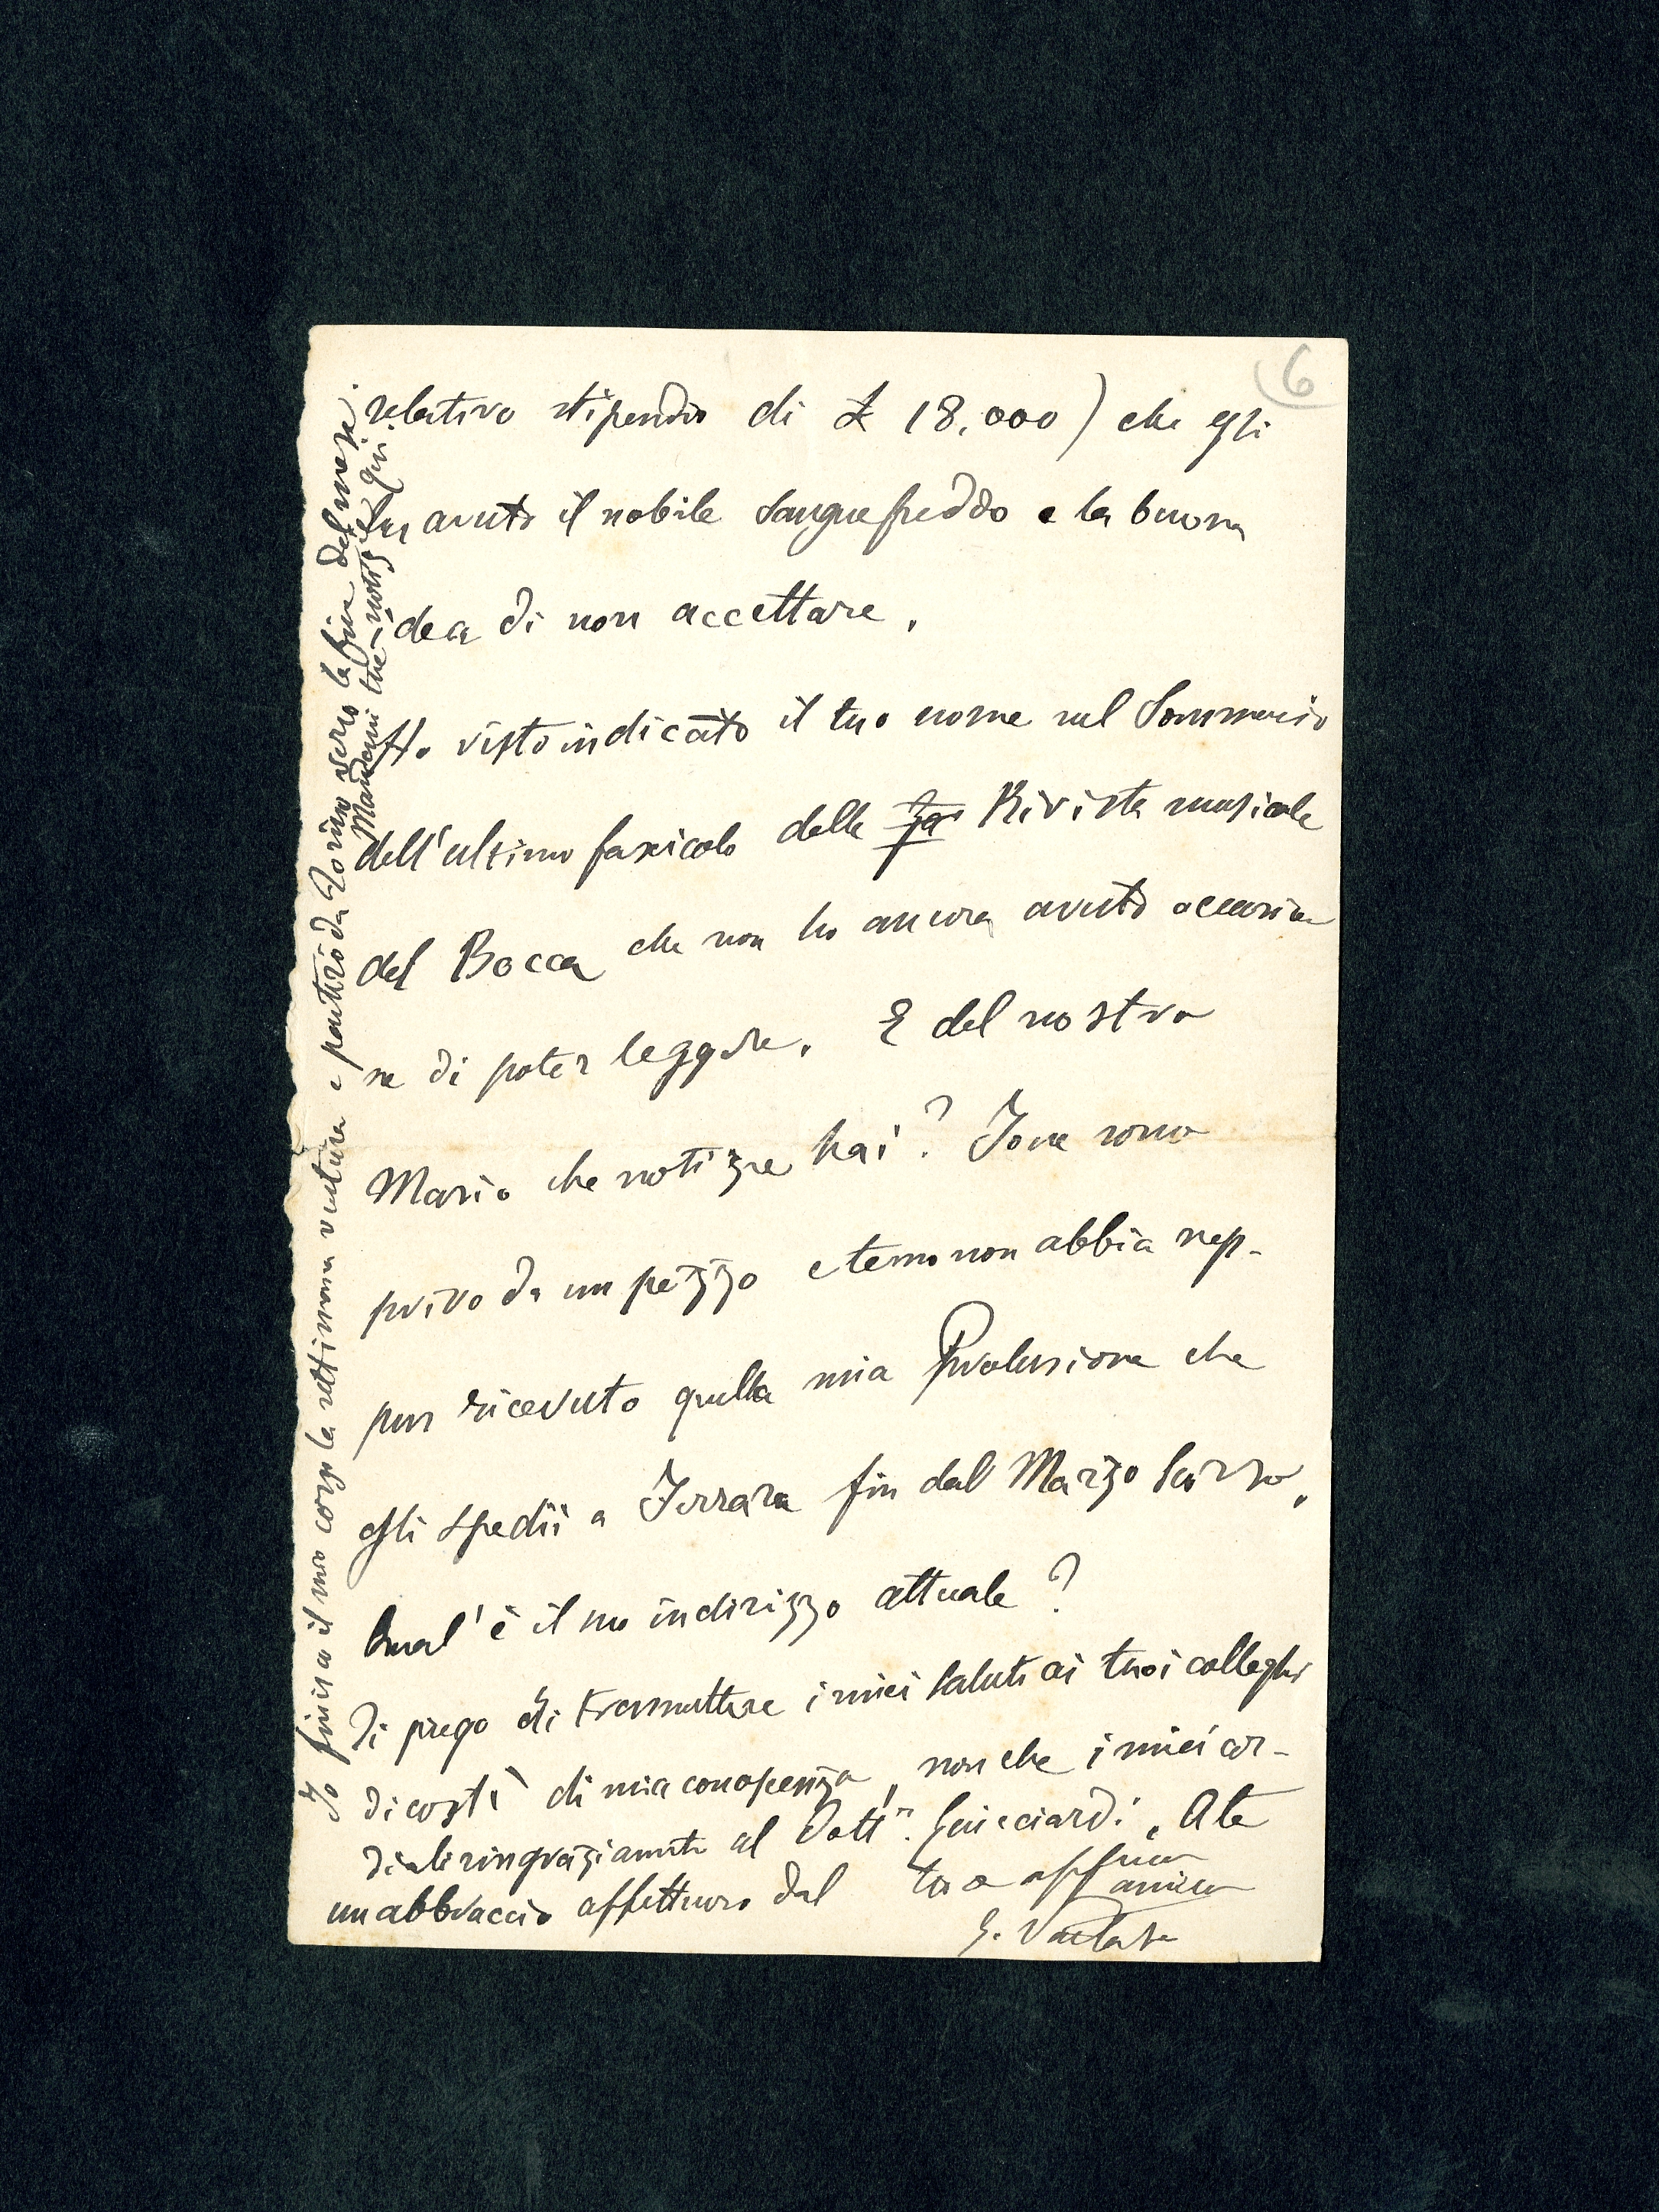 6
relativo stipendio di £ 18.000) che egli
ha avuto il nobile sangue freddo e la buona
idea di non accettare.
Ho visto indicato il tuo nome nel Sommario
dell'ultimo fascicolo della Rivista musicale
del Bocca che non ho ancora avuto occasio
ne di poter leggere. E del nostro
Mario che notizie hai? Io ne sono
privo da un pezzo e temo non abbia nep-
pur ricevuto quella mia Prolusione che
gli spedii a Ferrara fin dal Marzo scorso.
Qual'è il suo indirizzo attuale?
Ti prego di trasmettere i miei saluti ai tuoi colleghi
di costì di mia conoscenza, nonche i miei cor-
diali ringraziamenti al Dott.r Guicciardi. A te
un abbraccio affettuoso dal tuo affmo
amico
Io finisco il mio corso la settimana ventura e partirò da Torino verso la fine del mese.
Mandami tue notizie qui.